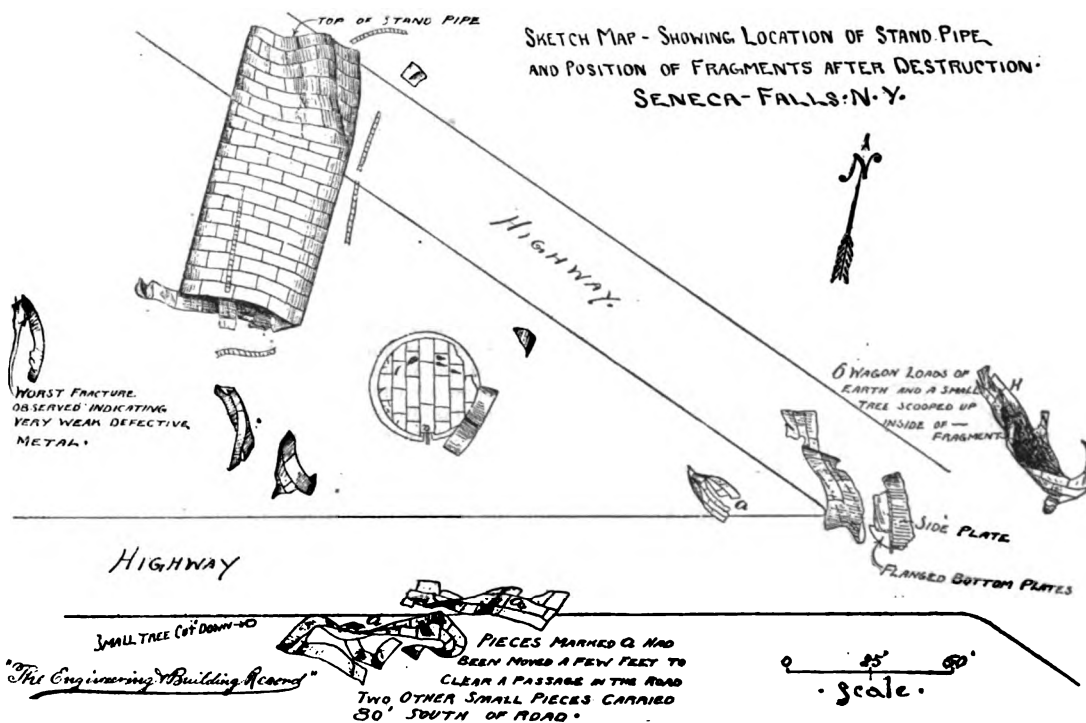 TOP OF STAND PIPE
SKETCH MAP - SHOWING LOCATION OF STAND PIPE
AND POSITION OF FRAGMENTS AFTER DESTRUCTION.
SENECA-FALLS. N.Y.
N
HIGHWAY.
WORST FRACTURE
OBSERVED INDICATING
VERY WEAK DEFECTIVE
METAL.
6 WAGON LOADS OF
EARTH AND A SMALL
TREE SCOOPED UP
INSIDE OF —
FRAGMENT
H
a
SIDE PLATE
FLANGED BOTTOM PLATES
HIGHWAY
a
a
SMALL TREE CUT DOWN
PIECES MARKED a HAD
BEEN MOVED A FEW FEET TO
CLEAR A PASSAGE IN THE ROAD
TWO OTHER SMALL PIECES CARRIED
80' SOUTH OF ROAD.
"The Engineering & Building Record"
0 25' 50'
. Scale .